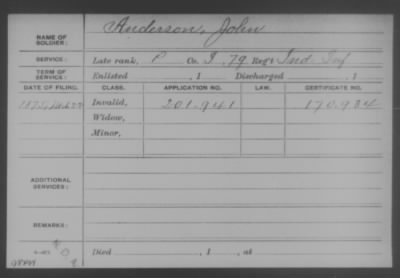 NAME OF SOLDIER: Anderson, John
SERVICE: Late rank, P Co. I, 79 Reg't Ind Inf
TERM OF SERVICE: Enlisted , 1 Discharged , 1
DATE OF FILING. CLASS. APPLICATION NO. LAW. CERTIFICATE NO.
1875, Invalid, 201.941 170.934
Widow,
Minor,
ADDITIONAL SERVICES:
REMARKS:
Died , 1 , at